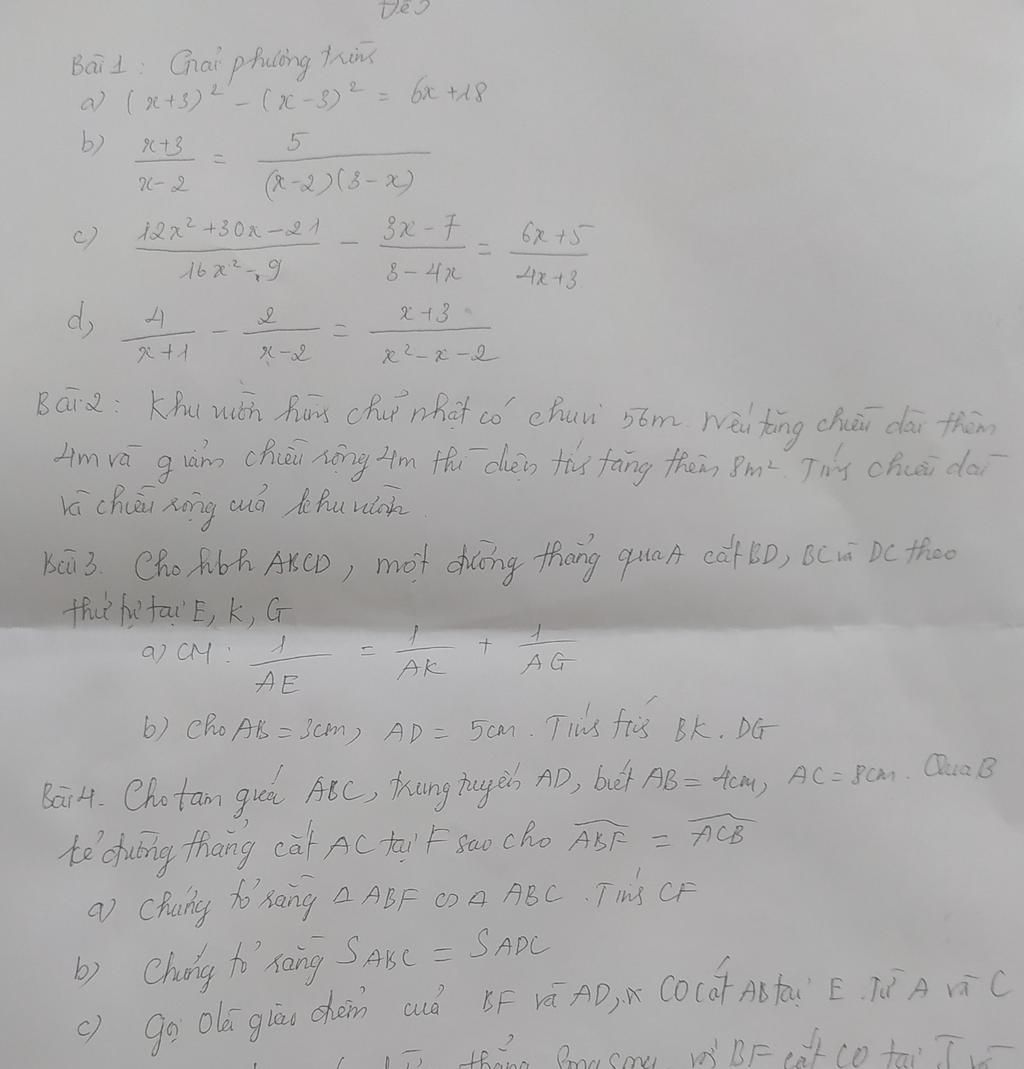 Đề 5
Bài 1 : Giải phương trình
a) (x+3)² - (x-3)² = 6x+18
b) x+3 / x-2 = 5 / (x-2)(3-x)
c) 12x²+30x-21 / 16x²-9 - 3x-7 / 3-4x = 6x+5 / 4x+3
d, 4 / x+1 - 2 / x-2 = x+3 / x²-x-2
Bài 2 : Khu vườn hình chữ nhật có chu vi 56m. Nếu tăng chiều dài thêm
4m và giảm chiều rộng 4m thì diện tích tăng thêm 8m². Tính chiều dài
và chiều rộng của khu vườn.
Bài 3. Cho hbh ABCD, một đường thẳng qua A cắt BD, BC và DC theo
thứ tự tại E, K, G
a) CM : 1 / AE = 1 / AK + 1 / AG
b) Cho AB = 3cm, AD = 5cm. Tính tích BK . DG
Bài 4. Cho tam giác ABC, trung tuyến AD, biết AB = 4cm, AC = 8cm. Qua B
kẻ đường thẳng cắt AC tại F sao cho ABF = ACB
a) Chứng tỏ rằng Δ ABF ∽ Δ ABC . Tính CF
b) Chứng tỏ rằng S ABC = S ADC
c) Gọi O là giao điểm của BF và AD, CO cắt AB tại E. Từ A và C
thẳng song song với BF cắt CO tại J và